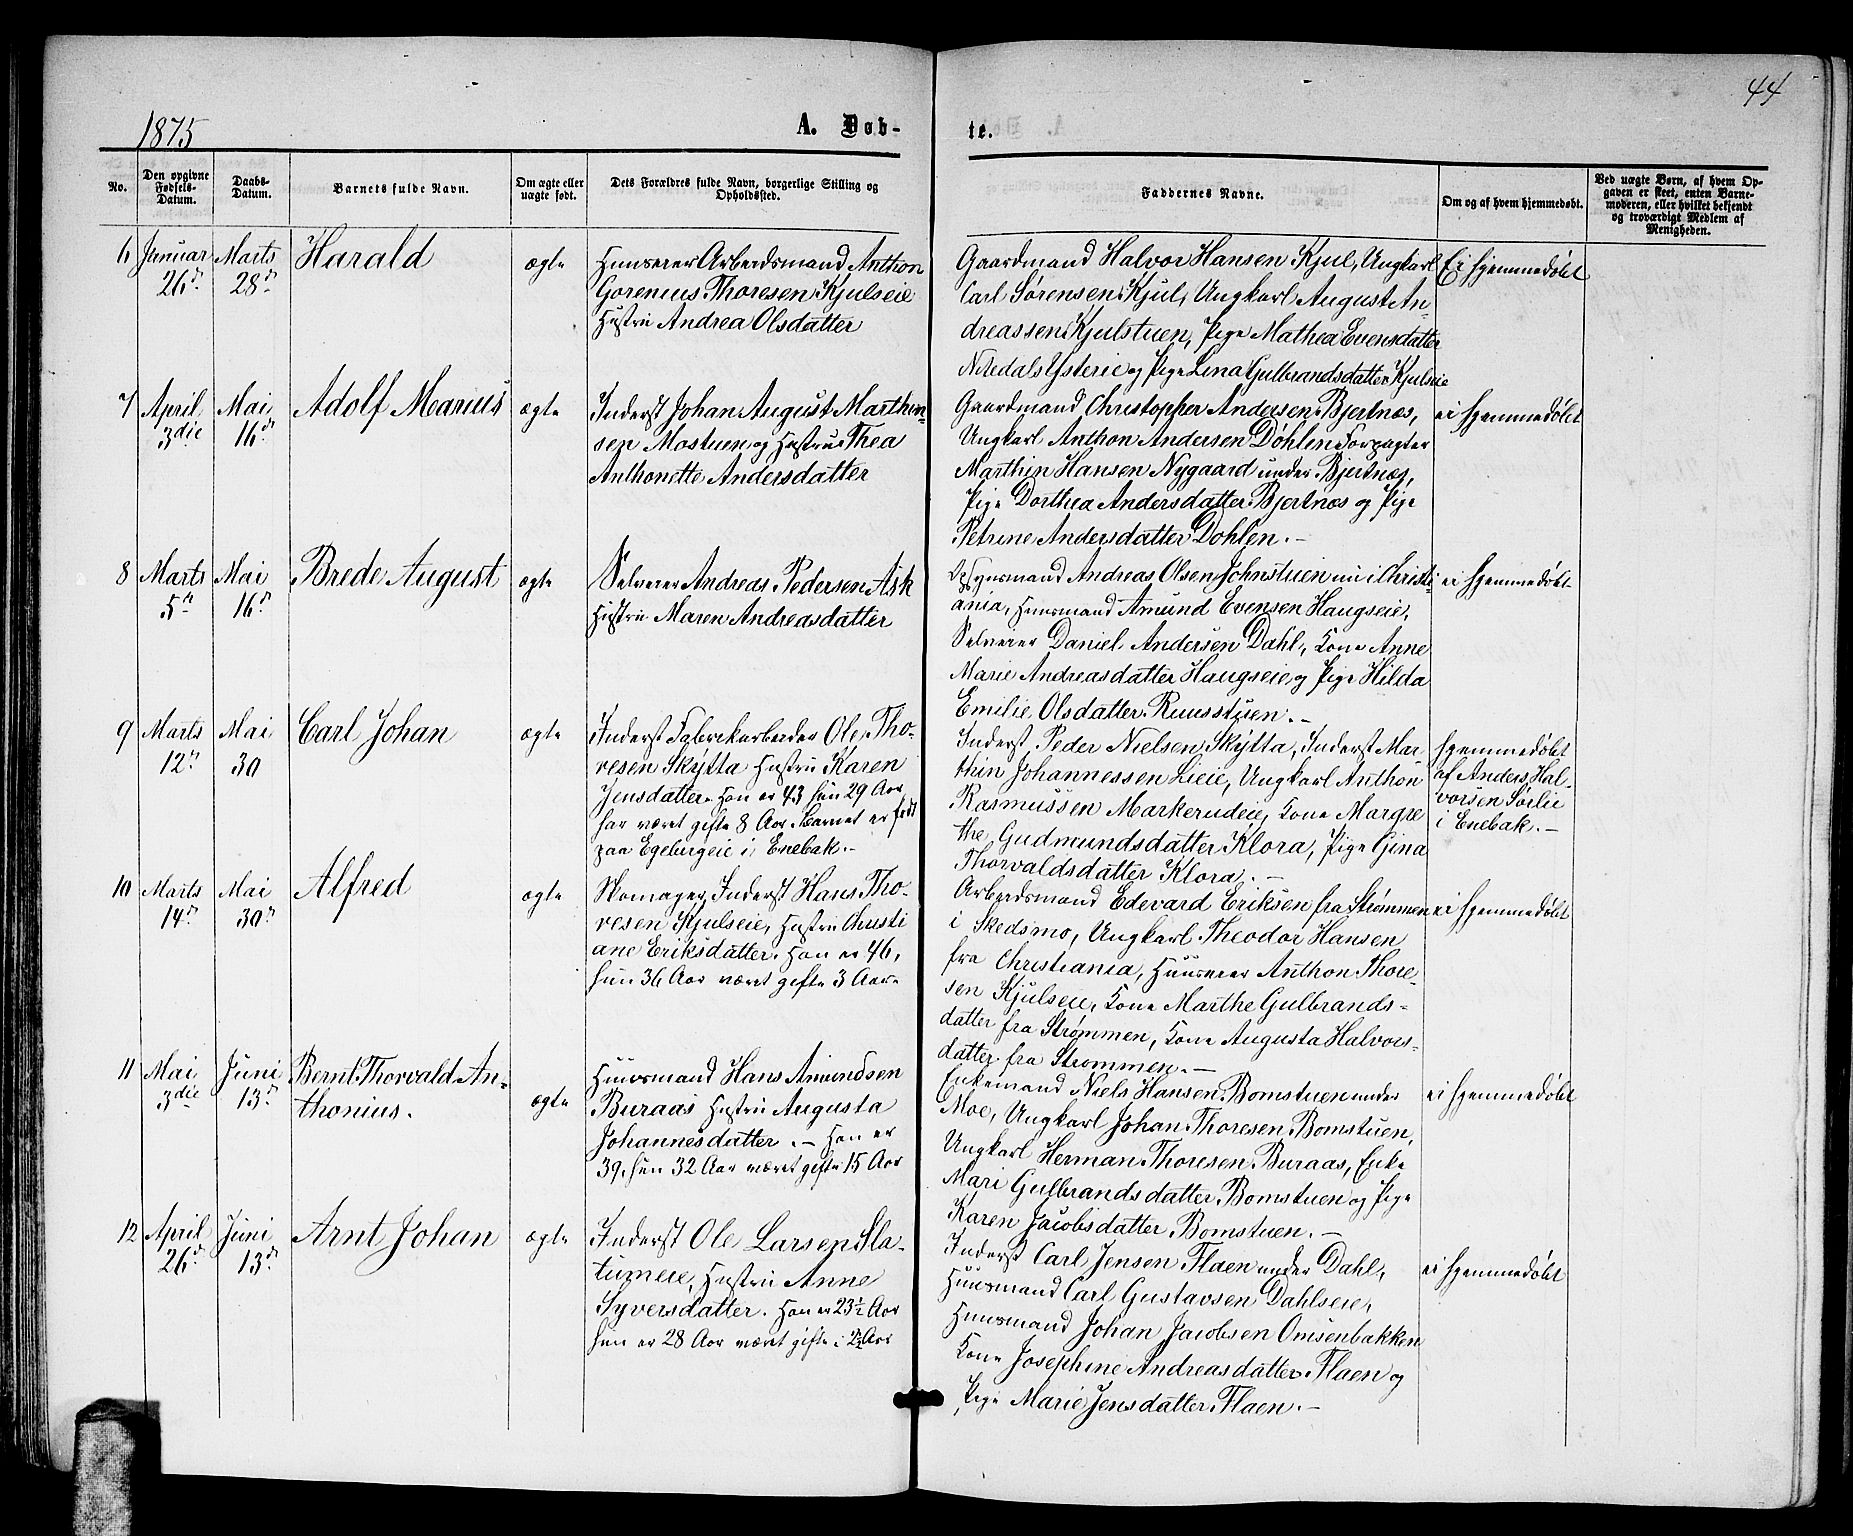 44
1875
A. Døb-
te.
No.
Den opgivne Fødsels-Datum.
Daabs-Datum.
Barnets fulde Navn.
Om ægte eller uægte født.
Dets Forældres fulde Navn, borgerlige Stilling og Opholdssted.
Faddernes Navne.
Om og af hvem hjemmedøbt.
Ved uægte Børn, af hvem Op-
gaven er skeet, enten Barne-
moderen, eller hvilket bekjendt
og troværdigt Medlem af
Menigheden.
6 Januar 26d. Marts 28d. Harald ægte
Huuseier Arbeidsmand Anthon
Gorenius Thoresen Kjulseie
Hustru Andrea Olsdatter
Gaardmand Halvor Hansen Kjul, Ungkarl
Carl Sørensen Kjul, Ungkarl August An-
dreassen Kjulstuen, Pige Mathea Evensdatter
Nitedals Ysterie og Pige Lina Gulbrandsdatter Kjulseie
Ei hjemmedøbt
7 April 3die Mai 16d. Adolf Marius ægte
Inderst Johan August Marthin-
sen Mostuen og Hustru Thea
Anthonette Andersdatter
Gaardmand Christopher Andersen Bjertnæs,
Ungkarl Anthon Andersen Døhlen Forpagter
Marthin Hansen Nygaard under Bjertnæs,
Pige Dorthea Andersdatter Bjertnæs og Pige
Petrine Andersdatter Døhlen.-
ei hjemmedøbt
8 Marts 5te Mai 16d. Brede August ægte
Selveier Andreas Pedersen Ask
Hustru Maren Andreasdatter
Opsynsmand Andreas Olsen Johnstuen nu i Christi-
ania, Huusmand Amund Evensen Haugseie,
Selveier Daniel Andersen Dahl, Kone Anne
Marie Andreasdatter Haugseie og Pige Hilda
Emilie Olsdatter Ruusstuen.-
ei hjemmedøbt
9 Marts 12te Mai 30 Carl Johan ægte
Inderst Fabrekarbeider Ole Tho-
resen Skÿtta Hustru Karen
Jensdatter. Han er 43 hun 29 Aar
har været gifte 8 Aar Barnet er født
paa Egebergeie i Enebak.-
Inderst Peder Nielsen Skÿtta, Inderst Mar-
thin Johannessen Lieie, Ungkarl Anthon
Rasmussen Markerudeie, Kone Margre
the Gudmundsdatter Klora, Pige Gina
Thorvaldsdatter Klora.-
hjemmedøbt
af Anders Hal-
vorsen Sørlie
i Enebak.-
10 Marts 14d. Mai 30d. Alfred ægte
Skomager, Inderst Hans Tho-
resen Kjulseie, Hustru Christi
ane Eriksdatter. Han er 46,
hun 36 Aar været gifte 3 Aar.
Arbeidsmand Edevard Eriksen fra Strømmen
i Skedsmo, Ungkarl Theodor Hansen
fra Christiania, Huuseier Anthon Thore-
sen Kjulseie, Kone Marthe Gulbrands-
datter fra Strømmen, Kone Augusta Halvors-
datter fra Strømmen.-
ei hjemmedøbt
11 Mai 3die Juni 13d. Bernt Thorvald An-
thonius. ægte
Huusmand Hans Amundsen
Buraas Hustru Augusta
Johannesdatter.- Han er
39, hun 32 Aar været gifte 15 Aar
Enkemand Niels Hansen Bomstuen under
Moe, Ungkarl Johan Thoresen Bomstuen,
Ungkarl Herman Thoresen Buraas, Enke
Mari Gulbrandsdatter Bomstuen og Pige
Karen Jacobsdatter Bomstuen.-
ei hjemmedøbt
12 April 26d. Juni 13d. Arnt Johan ægte
Inderst Ole Larsen Sla-
tumeie, Hustru Anne
Syversdatter. Han er 23½ Aar
hun er 28 Aar været gifte i ½ Aar
Inderst Carl Jensen Flaen under Dahl,
Huusmand Carl Gustavsen Dahlseie,
Huusmand Johan Jacobsen Omsenbakken
Kone Josephine Andreasdatter Flaen og
Pige Marie Jensdatter Flaen.-
ei hjemmedøbt